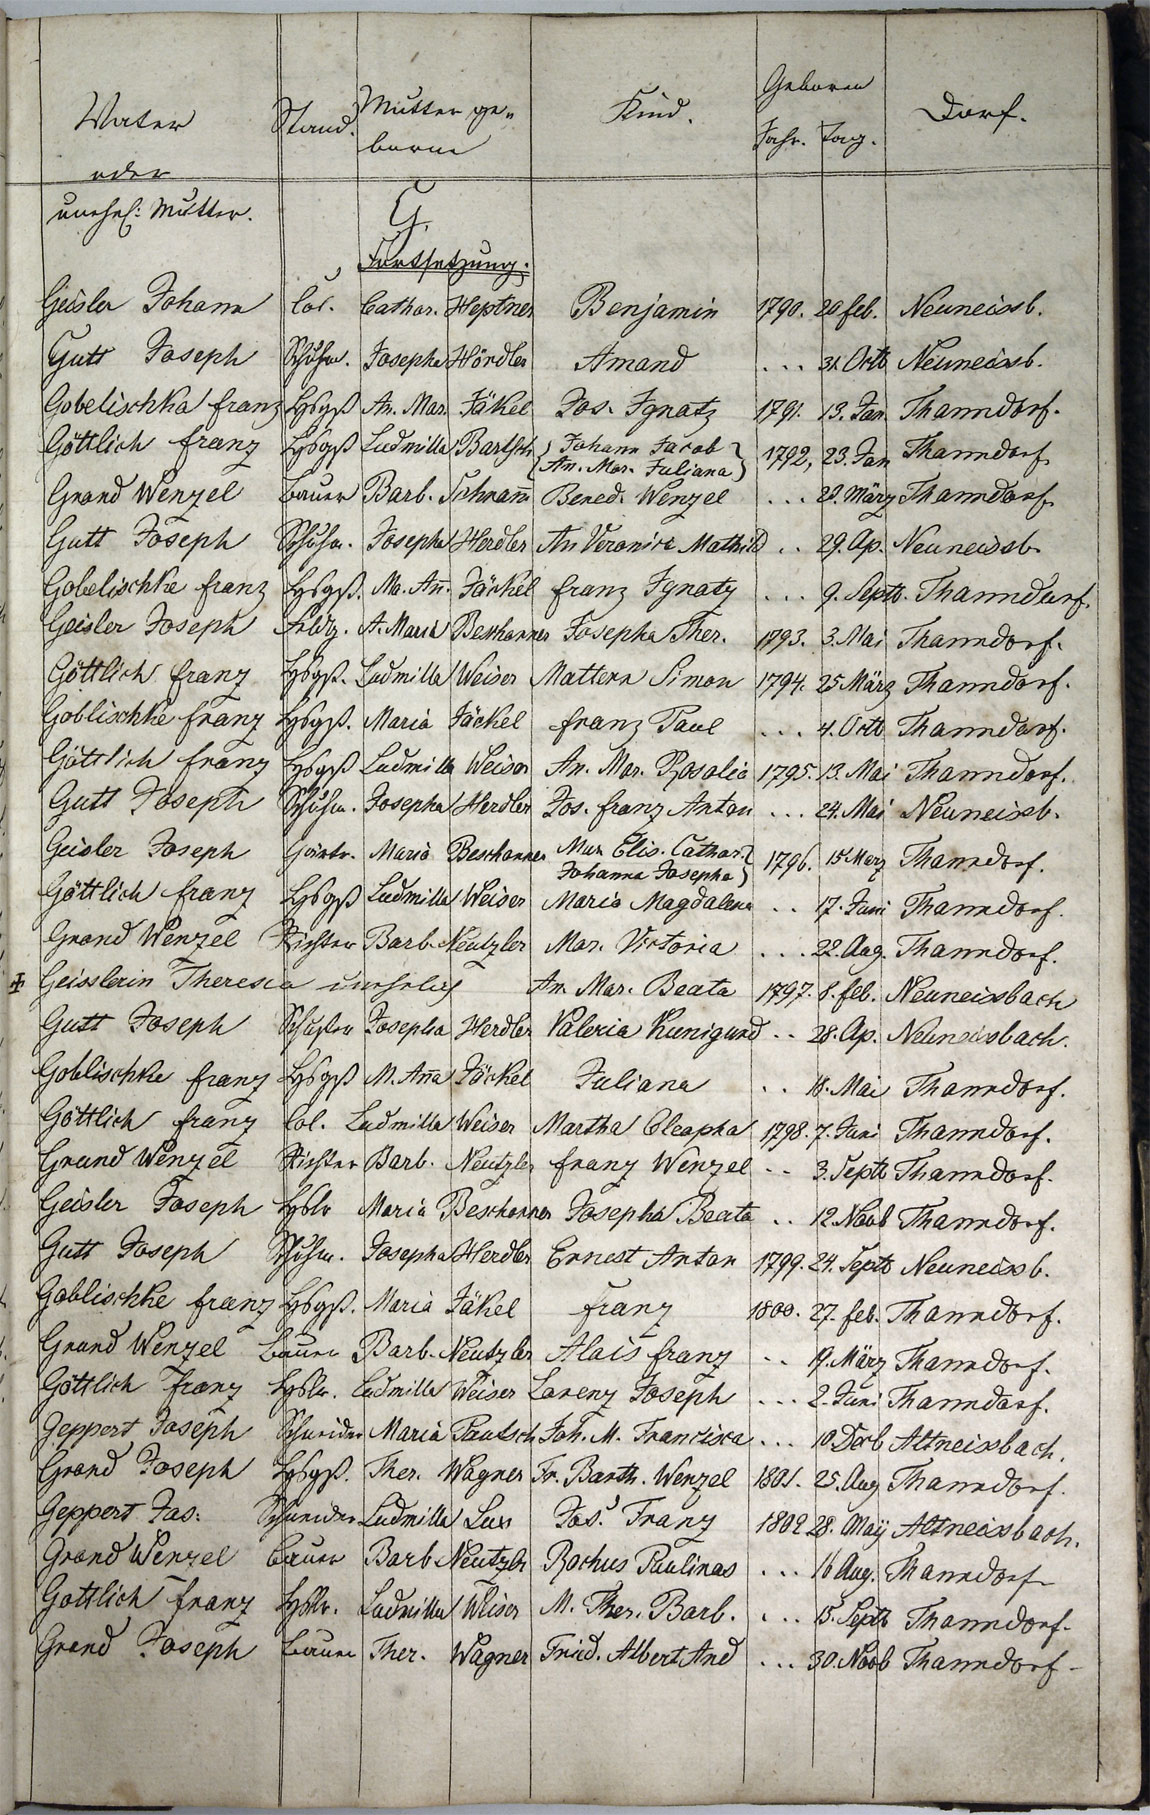 Vater Stand. Mutter ge- Kind. Geboren Dorf.
oder borne Jahr. Tag.
unehel: Mutter.
G.
Fortsetzung.
Geisler Johann Col. Cathar. Heptner Benjamin 1790. 20 feb. Neuneissb.
Gutt Joseph Schuhm. Josepha Hördler Amand ... 31. Octb Neuneissb.
Gobelischka franz Hsgß An. Mar. Jäkel Jos. Ignatz 1791. 13. Jan. Thanndorf.
Göttlich franz Hsgß Ludmilla Bartsch { Johann Jacob An. Mar. Juliana } 1792, 23. Jan Thanndorf
Grand Wenzel Bauer Barb. Schram̄ Bened. Wenzel ... 28. März Thanndorf
Gutt Joseph Schuhm. Josepha Herdler An Veronica Mathild .. 29. Ap. Neuneissb.
Gobelischke franz Hsgß. Ma. Añ. Jäckel franz Ignatz ... 9. Septb. Thanndorf.
Geisler Joseph A. Maria Beschorner Josepha Ther. 1793. 3. Mai Thanndorf.
Göttlich franz Hsgß. Ludmilla Weiser Mattern Simon 1794. 25 März Thanndorf.
Goblischke franz Hsgß. Maria Jäckel franz Paul ... 4. Octb Thanndorf.
Göttlich franz Hsgß Ludmilla Weiser An. Mar. Rosalia 1795. 13. Mai Thanndorf.
Gutt Joseph Schuhm. Josepha Herdler Jos. franz Anton ... 24. Mai Neuneissb.
Geisler Joseph Gärtr. Maria Beschorner Mar. Elis. Cathar. Johanna Josepha } 1796. 15 Merz Thanndorf.
Göttlich franz Hsgß Ludmilla Weiser Maria Magdalena .. 17. Juni Thanndorf.
Grand Wenzel Richter Barb. Neutzler Mar. Victoria ... 22. Aug. Thanndorf.
Geisslerin Theresia unehelich An. Mar. Beata 1797. 8. feb. Neuneissbach
Gutt Joseph Schuster Josepha Herdler Valeria Kunigund .. 28. Ap. Neuneissbach.
Goblischke franz Hsgß M. Añna Jäckel Juliana .. 18. Mai Thanndorf.
Göttlich franz Col. Ludmilla Weiser Martha Cleopha 1798. 7. Juni Thanndorf.
Grand Wenzel Richter Barb. Neutzler franz Wenzel .. 3. Septb Thanndorf.
Geisler Joseph Hslr Maria Beschorner Josepha Beata .. 12. Novb Thanndorf.
Gutt Joseph Schuhm. Josepha Herdler Ernest Anton 1799. 24. Septb Neuneissb.
Goblischke franz Hsgß. Maria Jäkel franz 1800. 27. feb. Thanndorf.
Grand Wenzel Bauer Barb. Neutzler Alois franz .. 19. März Thanndorf.
Göttlich franz Hslr. Ludmilla Weiser Lorenz Joseph ... 2. Juni Thanndorf.
Geppert Joseph Schneider Maria Pautsch Joh. M. Francisca ... 10. Decb Altneissbach.
Grand Joseph Hsgß. Ther. Wagner Fr. Barth. Wenzel 1801. 25. Aug Thanndorf.
Geppert Jos. Schneider Ludmilla Lux Jos. Franz 1802 28. Maÿ Altneissbach.
Grand Wenzel Bauer Barb Neutzler Rochus Paulinas ... 16 Aug. Thanndorf
Gottlich franz Hslr. Ludmilla Weiser M. Ther. Barb. ... 15. Septb Thanndorf.
Grand Joseph Bauer Ther. Wagner Fried. Albert And ... 30. Novb Thanndorf